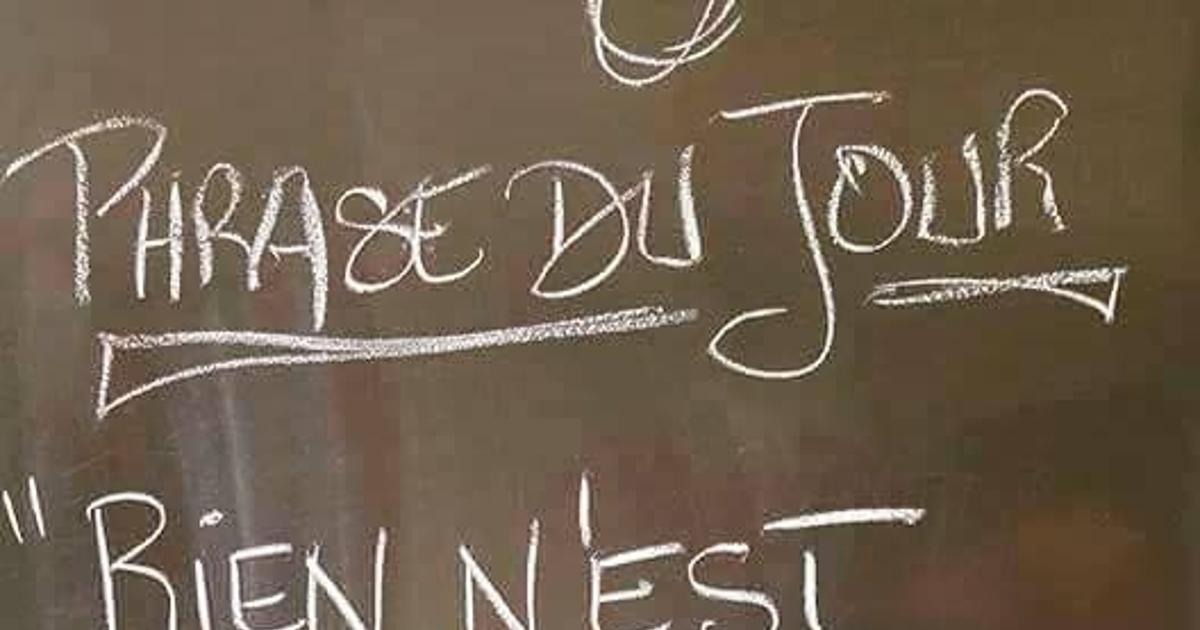 PHRASE DU JOUR
"RiEN N'EST